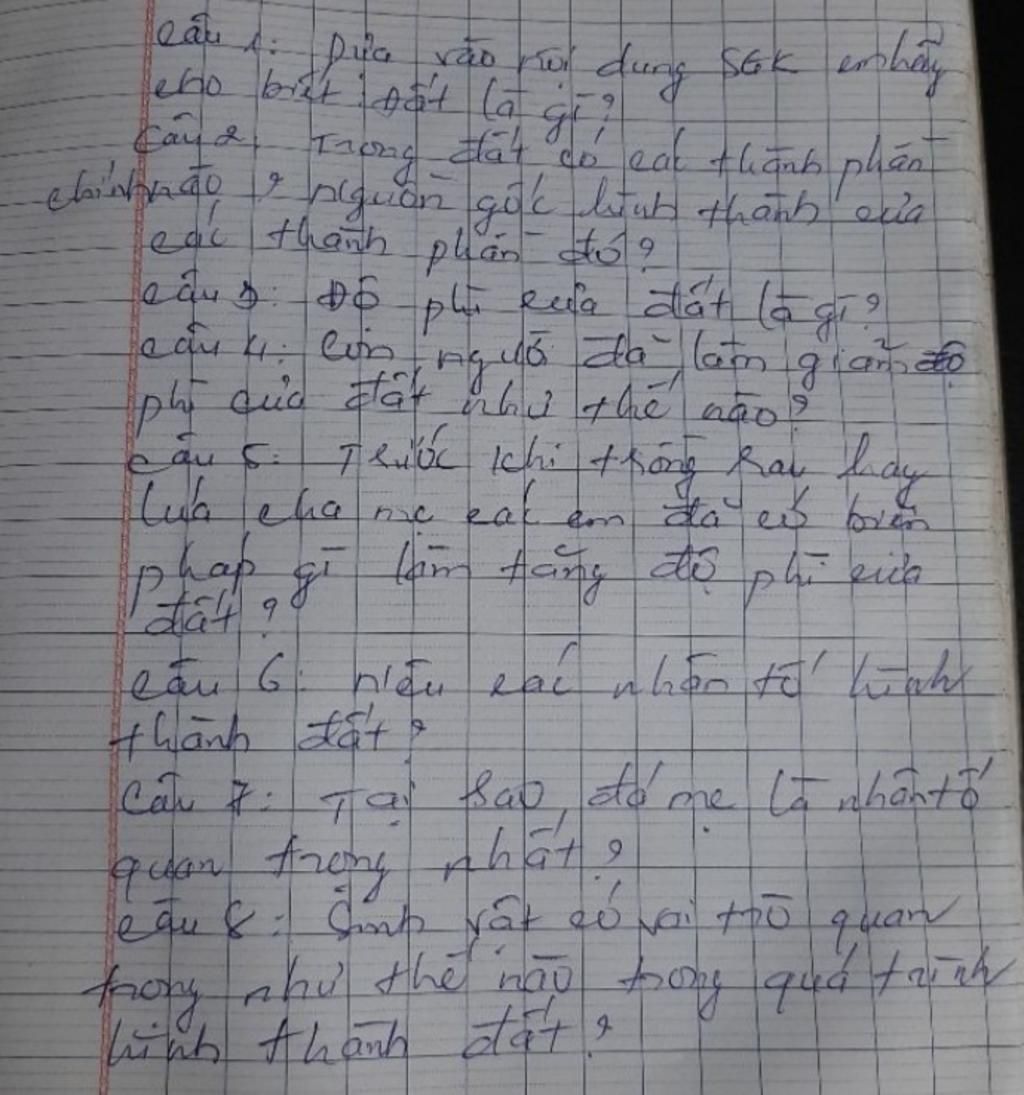 Câu 1: Dựa vào nội dung SGK em hãy
cho biết Đất là gì?
Câu 2 Trong đất có các thành phần
chính nào? Nguồn gốc hình thành của
các thành phần đó?
Câu 3: Độ phì của đất là gì?
Câu 4: Con người đã làm giảm độ
phì của đất như thế nào?
Câu 5: Trước khi trồng rau hay
lúa cha mẹ các em đã có biện
pháp gì làm tăng độ phì của
đất?
Câu 6: Nêu các nhân tố hình
thành đất?
Câu 7: Tại sao đá mẹ là nhân tố
quan trọng nhất?
Câu 8: Sinh vật có vai trò quan
trọng như thế nào trong quá trình
hình thành đất?